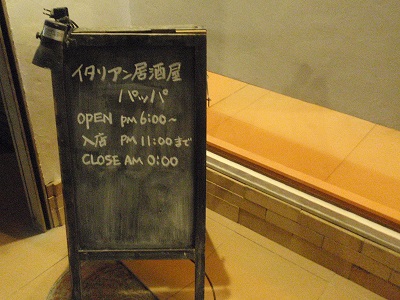 イタリアン居酒屋
パッパ
OPEN PM 6:00~
入店 PM 11:00まで
CLOSE AM 0:00